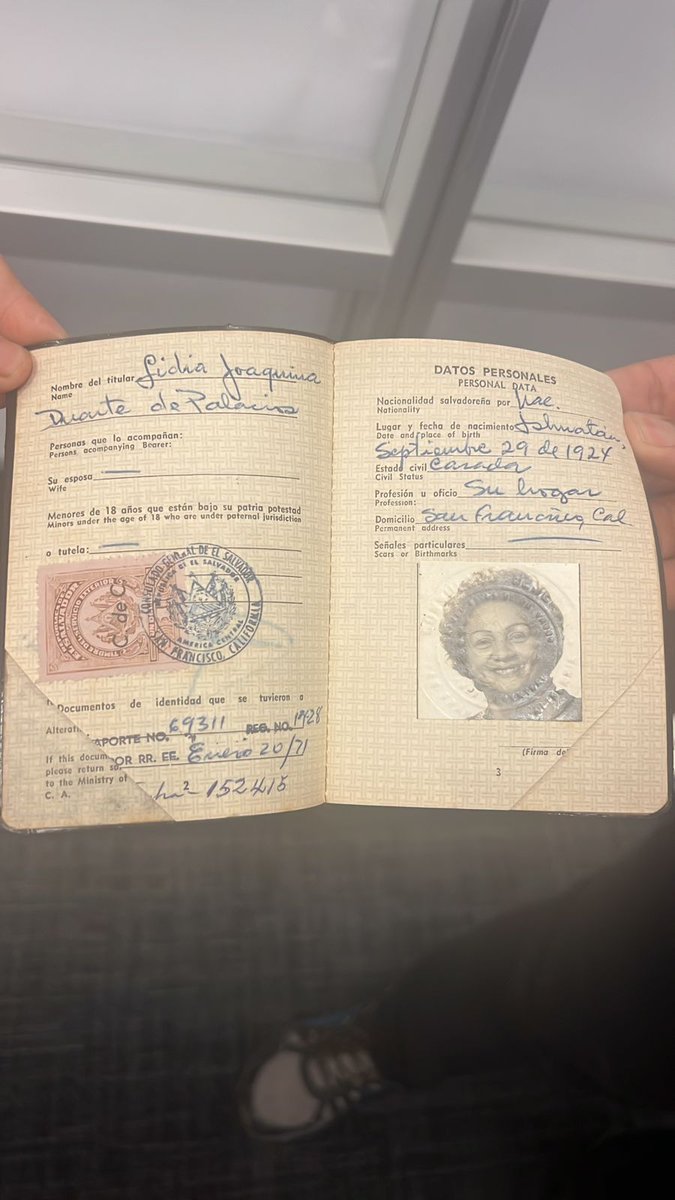 Nombre del titular Lidia Joaquina
Name
Duarte de Palacios
Personas que lo acompañan:
Persons accompanying Bearer:
Su esposa
Wife
Menores de 18 años que están bajo su patria potestad
Minors under the age of 18 who are under paternal jurisdiction
o tutela:
CONSULADO GENERAL DE EL SALVADOR
REPUBLICA DE EL SALVADOR
AMERICA CENTRAL
SAN FRANCISCO, CALIFORNIA
SALVADOR
C. de C.
Documentos de identidad que se tuvieron a
APORTE NO. 69311 REG. NO. 1928
If this docum OR RR. EE. Enero 20/71
please return
to the Ministry of
C. A. 152415
DATOS PERSONALES
PERSONAL DATA
Nacionalidad salvadoreña por Nac.
Nationality
Lugar y fecha de nacimiento
Date and place of birth
Septiembre 29 de 1924
Estado civil Casada
Civil Status
Profesión u oficio Su hogar
Profession:
Domicilio San Francisco Cal
Permanent address
Señales particulares
Scars or Birthmarks
(Firma de
3